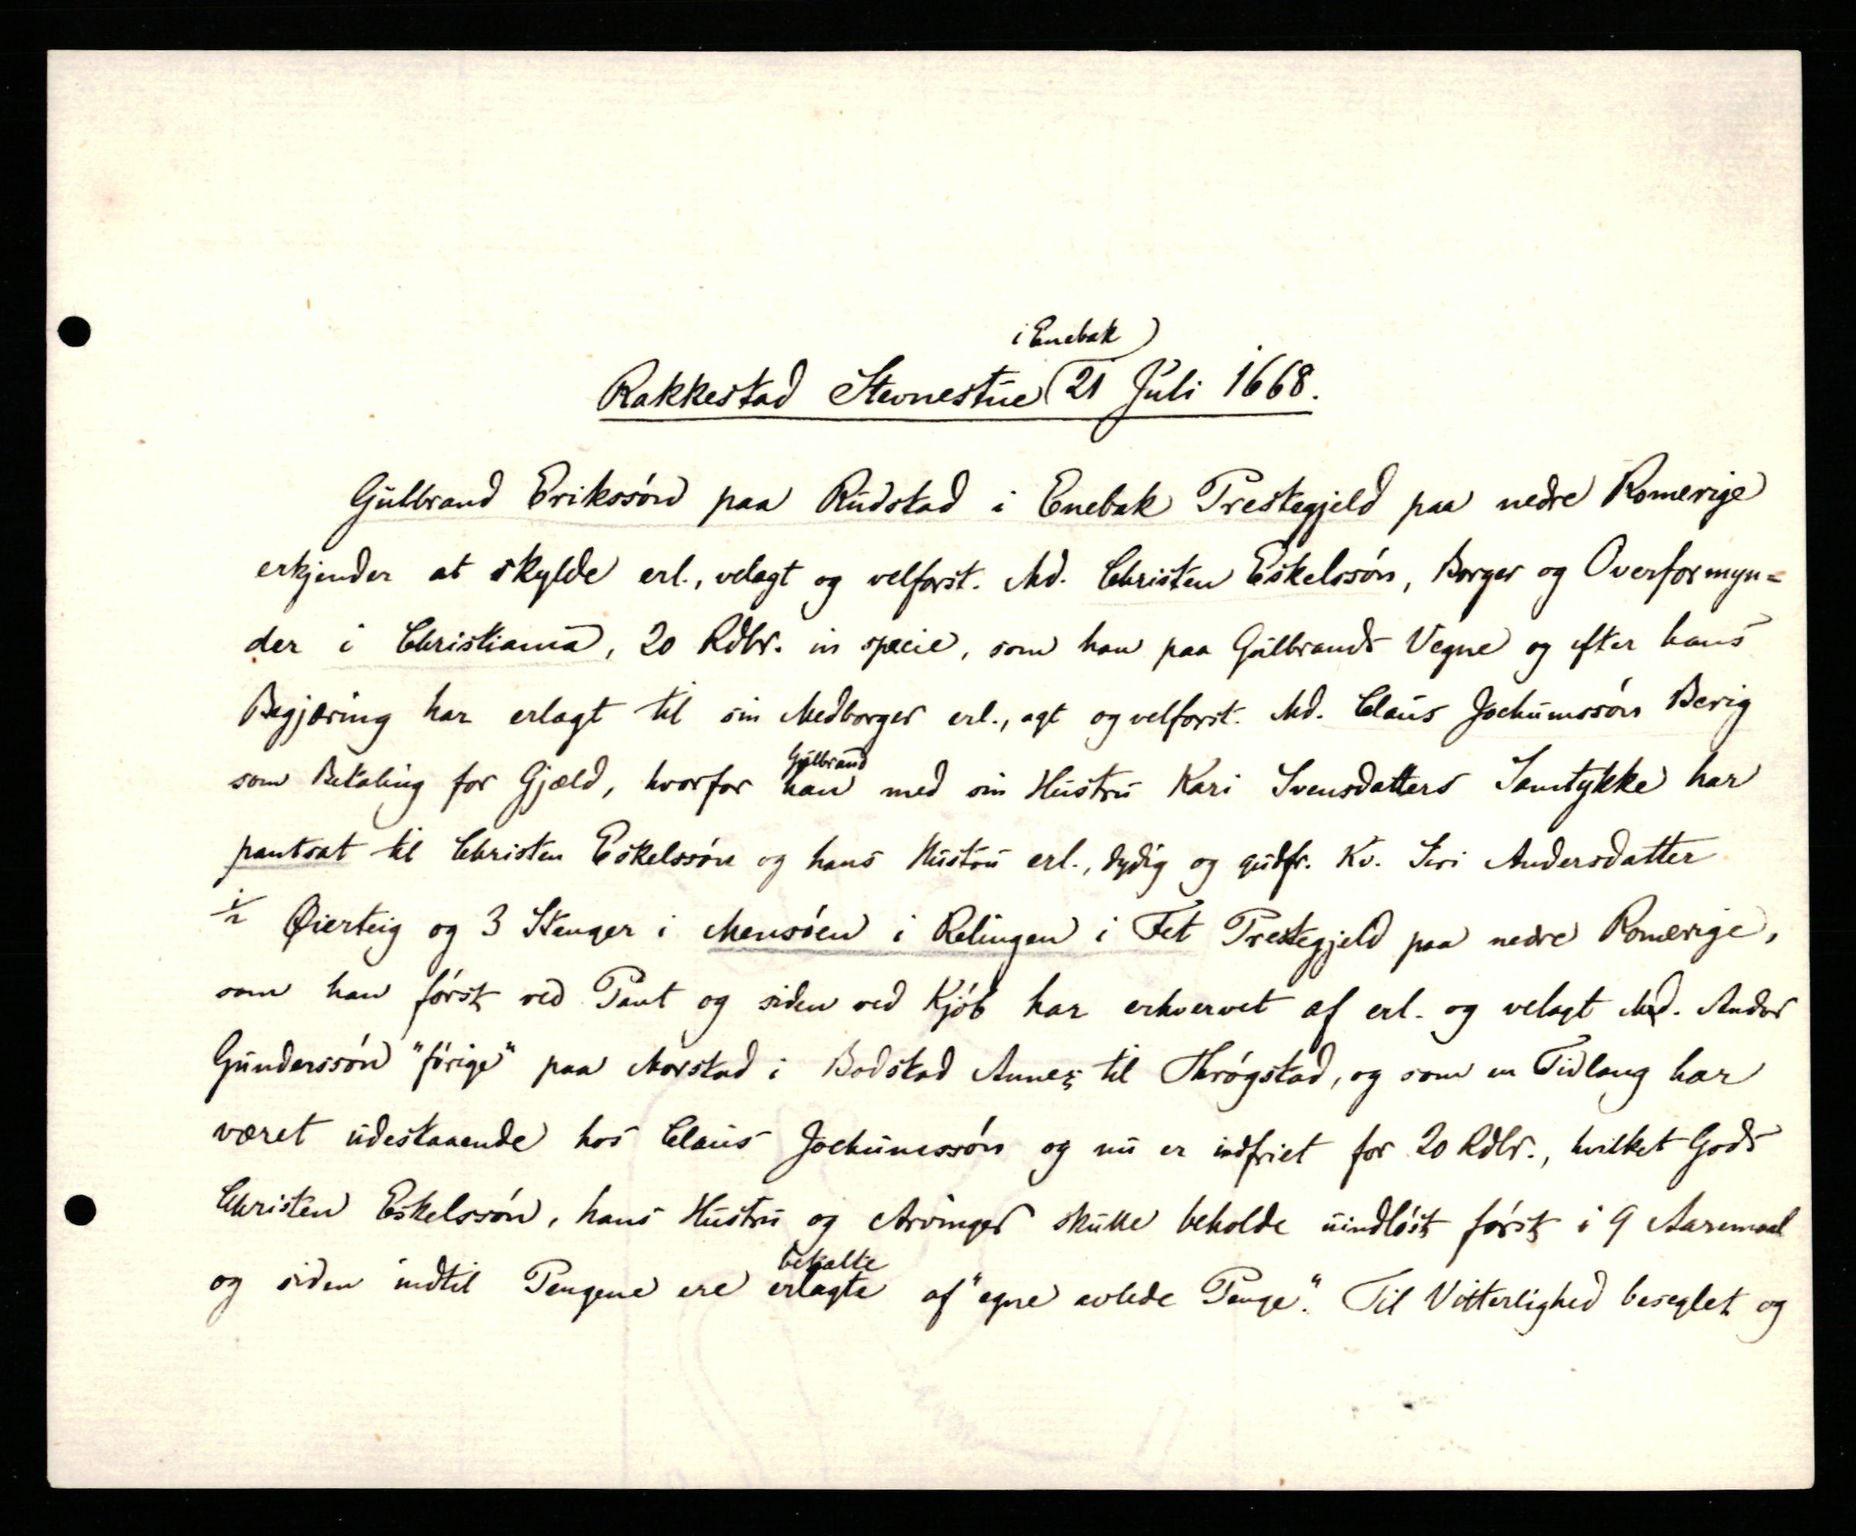 i Enebak)
Rakkestad Stevnestue (21 Juli 1668.
Gulbrand Erikssön paa Rudstad i Enebak Prestegjeld paa nedre Romerige
erkjender at skylde erl., velagt og velforst. Md. Christen Eskelssön, Borger og Overformyn=
der i Christiania, 20 Rdlr. in specie, som han paa Gulbrands Vegne og efter hans
Begjæring har erlagt til sin Medborger erl., agt og velforst. Md. Claus Jochumssön Berig
som Betaling for Gjæld, hvorfor han med sin Hustru Kari Svensdatters Samtykke har
Gulbrand
pantsat til Christen Eskelssön og hans Hustru erl., dydig og gudfr. Kv. Siri Andersdatter
1/2 Øierteig og 3 Stenger i Mensöen i Relingen i Fet Prestegjeld paa nedre Romerige,
som han först ved Pant og siden ved Kjöb har erhvervet af erl. og velagt Md. Andor
Gunderssön "förige" paa Morstad i Bodstad Annex til Thrögstad, og som en Tidlang har
været udestaaende hos Claus Jochumssön og nu er indfriet for 20 Rdlr., hvilket Gods
Christen Eskelssön, hans Hustru og Arvinger skulle beholde uindlöst först i 9 Aaremaal
og siden indtil Pengene ere erlagte af "egne avlede Penge". Til Vitterlighed beseglet og
betalte